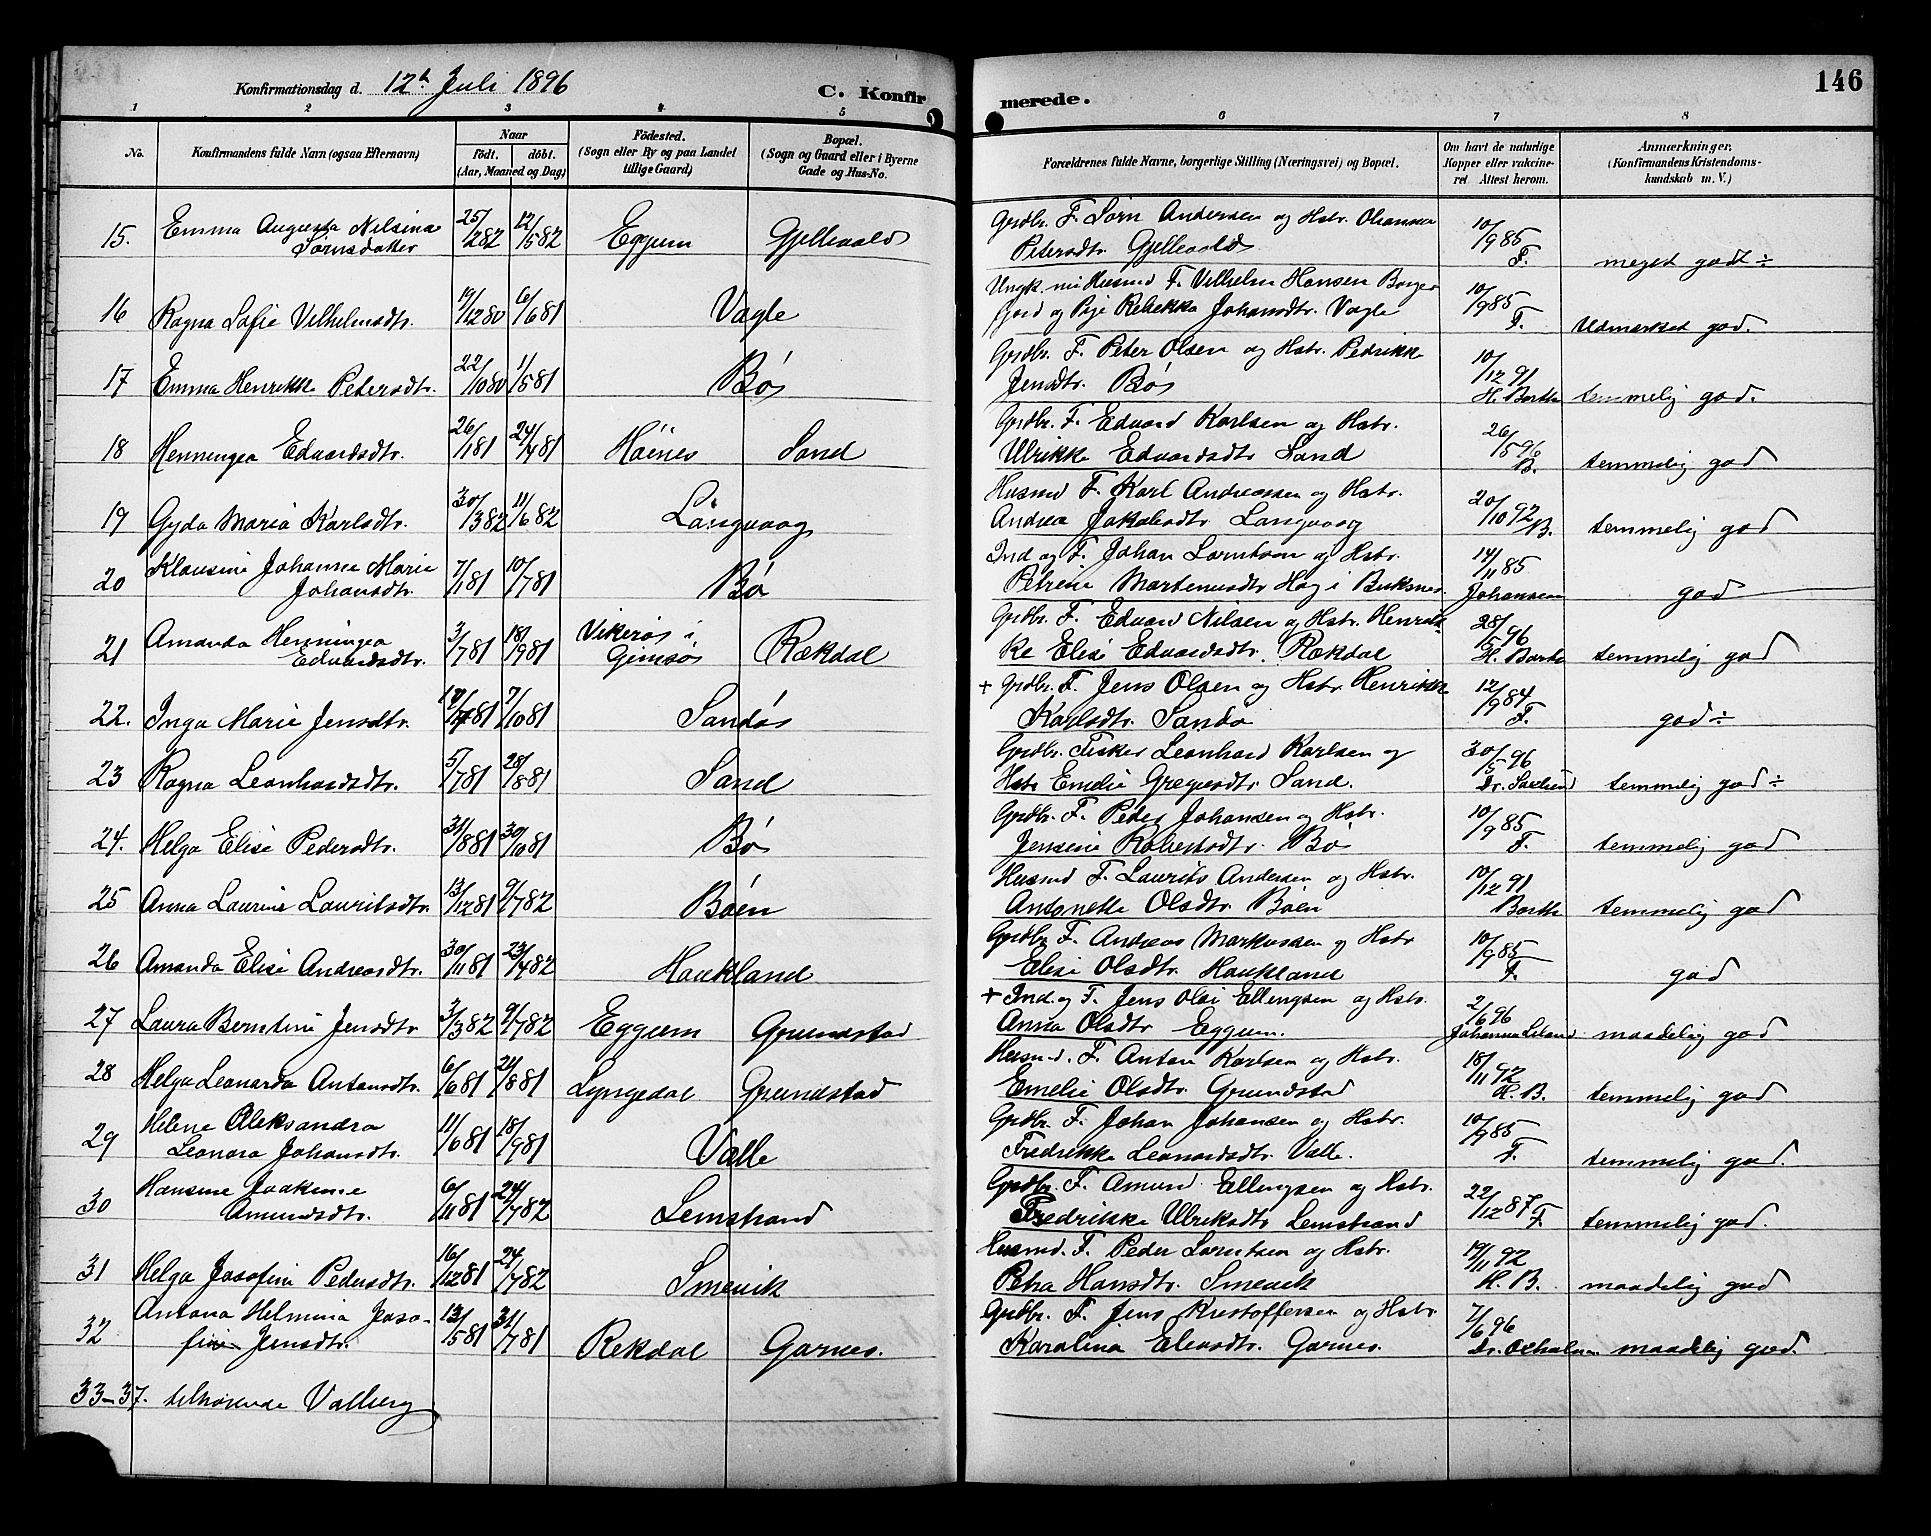 Konfirmationsdag d. 12h Juli 1896
C. Konfirmerede.
146
1 2 3 4 5 6 7 8
No.
Konfirmandens fulde Navn (ogsaa Efternavn)
Naar
Födt. döbt.
(Aar, Maaned og Dag)
Födested.
(Sogn eller By og paa Landet
tillige Gaard)
Bopæl.
(Sogn og Gaard eller i Byerne
Gade og Hus-No.
Forældrenes fulde Navne, borgerlige Stilling (Næringsvei) og Bopæl.
Om havt de naturlige
Kopper eller vakcine-
ret Attest herom.
Anmærkninger.
(Konfirmandens Kristendoms-
kundskab m. V.)
15. Emma Augusta Nilsina 25/282 12/582 Eggum Gjellevald Grdbr. F. Sörn Andersen og Hstr. 10/985
Petersdtr. Gjellevald F. meget godt ÷
16 Ragna Sofie Vilhelmsdtr. 19/1280 6/681 Vagle Ungk. nu Husmd F. Vilhelm Hansen Borge 10/985
fjord og Pige Rebekka Johansdtr. Vagle F. Udmærket god.
17 Emma Henrikke Petersdtr. 22/1080 1/581 Bös Grdbr. F. Peter Olsen og Hstr. Pedrikke 10/12 91
Jensdtr. Bös H. Barth temmelig god.
18 Henningea Edvardsdtr. 26/181 24/481 Höines Sand Grdbr. F. Edvard Karlsen og Hstr. 26/5 96
Ulrikke Edvardsdtr Sand B. temmelig god
19 Gyda Maria Karlsdtr. 30/382 11/682 Langvaag Husmd F. Karl Andreassen og Hstr. 20/10 92
Andrea Jakobsdtr Langvaag B. temmelig god
20 Klausine Johanna Marie 7/181 10/781 Bö Ind og F. Johan Lorntsen og Hstr. 14/11 85
Johansdtr. Petrine Martenusdtr Hag i Buksnes Johansen god
21 Amanda Henningea 3/781 18/981 Vikerøs i Rækdal Grdbr. F. Edvard Nilsen og Hstr. Henrik- 28/5 96
Edvardsdtr. Gimsøs ke Elise Edvardsdtr. Rækdal H. Barth temmelig god
22. Inga Marie Jensdtr. 7/1081 Sandøs + Grdbr. F. Jens Olsen og Hstr. Henrikke 12/9 84
Karlsdtr. Sandø F. god ÷
23 Ragna Leonhardsdtr. 5/781 28/881 Sand Grdbr. Fisker Leonhard Karlsen og 30/5 96
Hstr Emelie Gregersdtr. Sand. temmelig god ÷
24. Helga Elise Pedersdtr. 31/881 30/1081 Bö Grdbr. F. Peder Johansen og Hstr. 10/985
Jensine Robertsdtr. Bö F. temmelig god
25 Anna Laurine Lauritsdtr. 13/1281 9/782 Böen Husmd F. Laurits Andersen og Hstr. 10/12 91
Antonette Olsdtr. Böen Barth temmelig god
26 Amanda Elise Andreasdtr. 30/1181 23/482 Haukland Grdbr F. Andreas Markussen og Hstr 10/985
Elise Olsdtr. Haukland F. god
27 Laura Berntine Jensdtr 3/382 9/782 Eggum Grundstad + Ind. og F. Jens Olai Ellingsen og Hstr. 2/6 96
Anna Olsdtr Eggum. Johanna Leland maadelig god
28 Helga Leonarda Antonsdtr. 6/681 21/881 Lyngedal Grundstad Husmd. F. Anton Karlsen og Hstr. 18/11 92
Emelie Olsdtr. Grundstad H. B. temmelig god
29 Helene Aleksandra 11/681 18/981 Valle Grdbr. F. Johan Johansen og Hstr. 10/985
Leonora Johansdtr. Fredrikke Leonardsdtr. Valle. F. temmelig god.
30 Hansine Joakime 6/1181 24/782 Lemstrand Grdbr. F. Amund Ellingsen og Hstr. 22/12 87
Amundsdtr. Fredrikke Ulriksdtr Lemstrand F. temmelig god.
31 Helga Josefine Pedersdtr. 16/1281 24/782 Smevik Husmd. F. Peder Lorntsen og Hstr. 19/11 92
Petra Hansdtr. Smevik H. B. maadelig god
32 Antona Helmina Joso- 13/581 31/781 Rekdal Garnes. Grdbr. F. Jens Kristoffersen og Hstr 7/6 96
fine Jensdtr. Karolina Eliasdtr. Garnes. maadelig god.
33-37. tilhørende Valberg